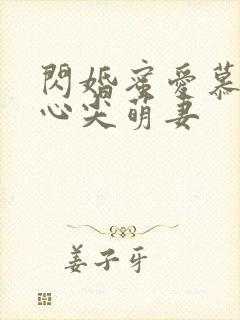 閃婚蜜愛慕
心尖萌妻
姜子牙